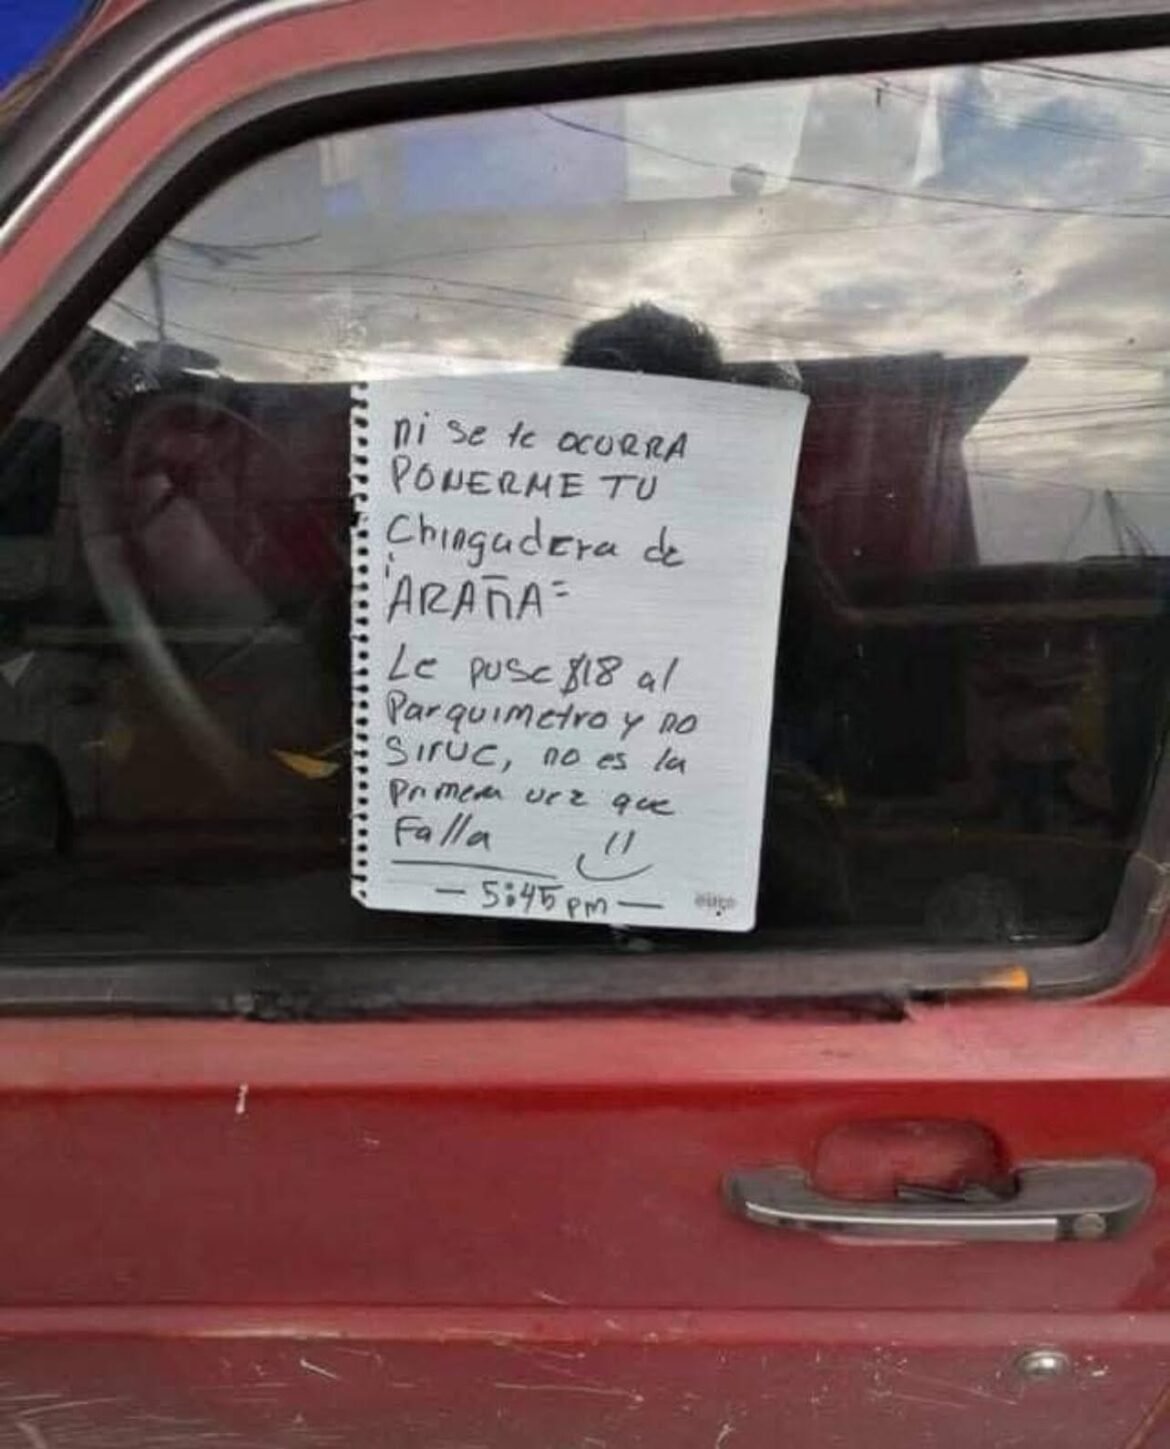 ni se te OCURRA
PONERME TU
Chingadera de
"ARAÑA"
Le puse $18 al
Parquimetro y no
siruc, no es la
primera vez que
Falla
— 5:45 pm —